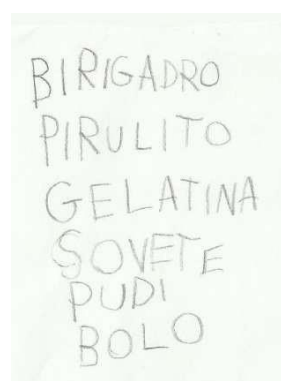 BIRIGADRO
PIRULITO
GELATINA
SOVETE
PUDI
BOLO